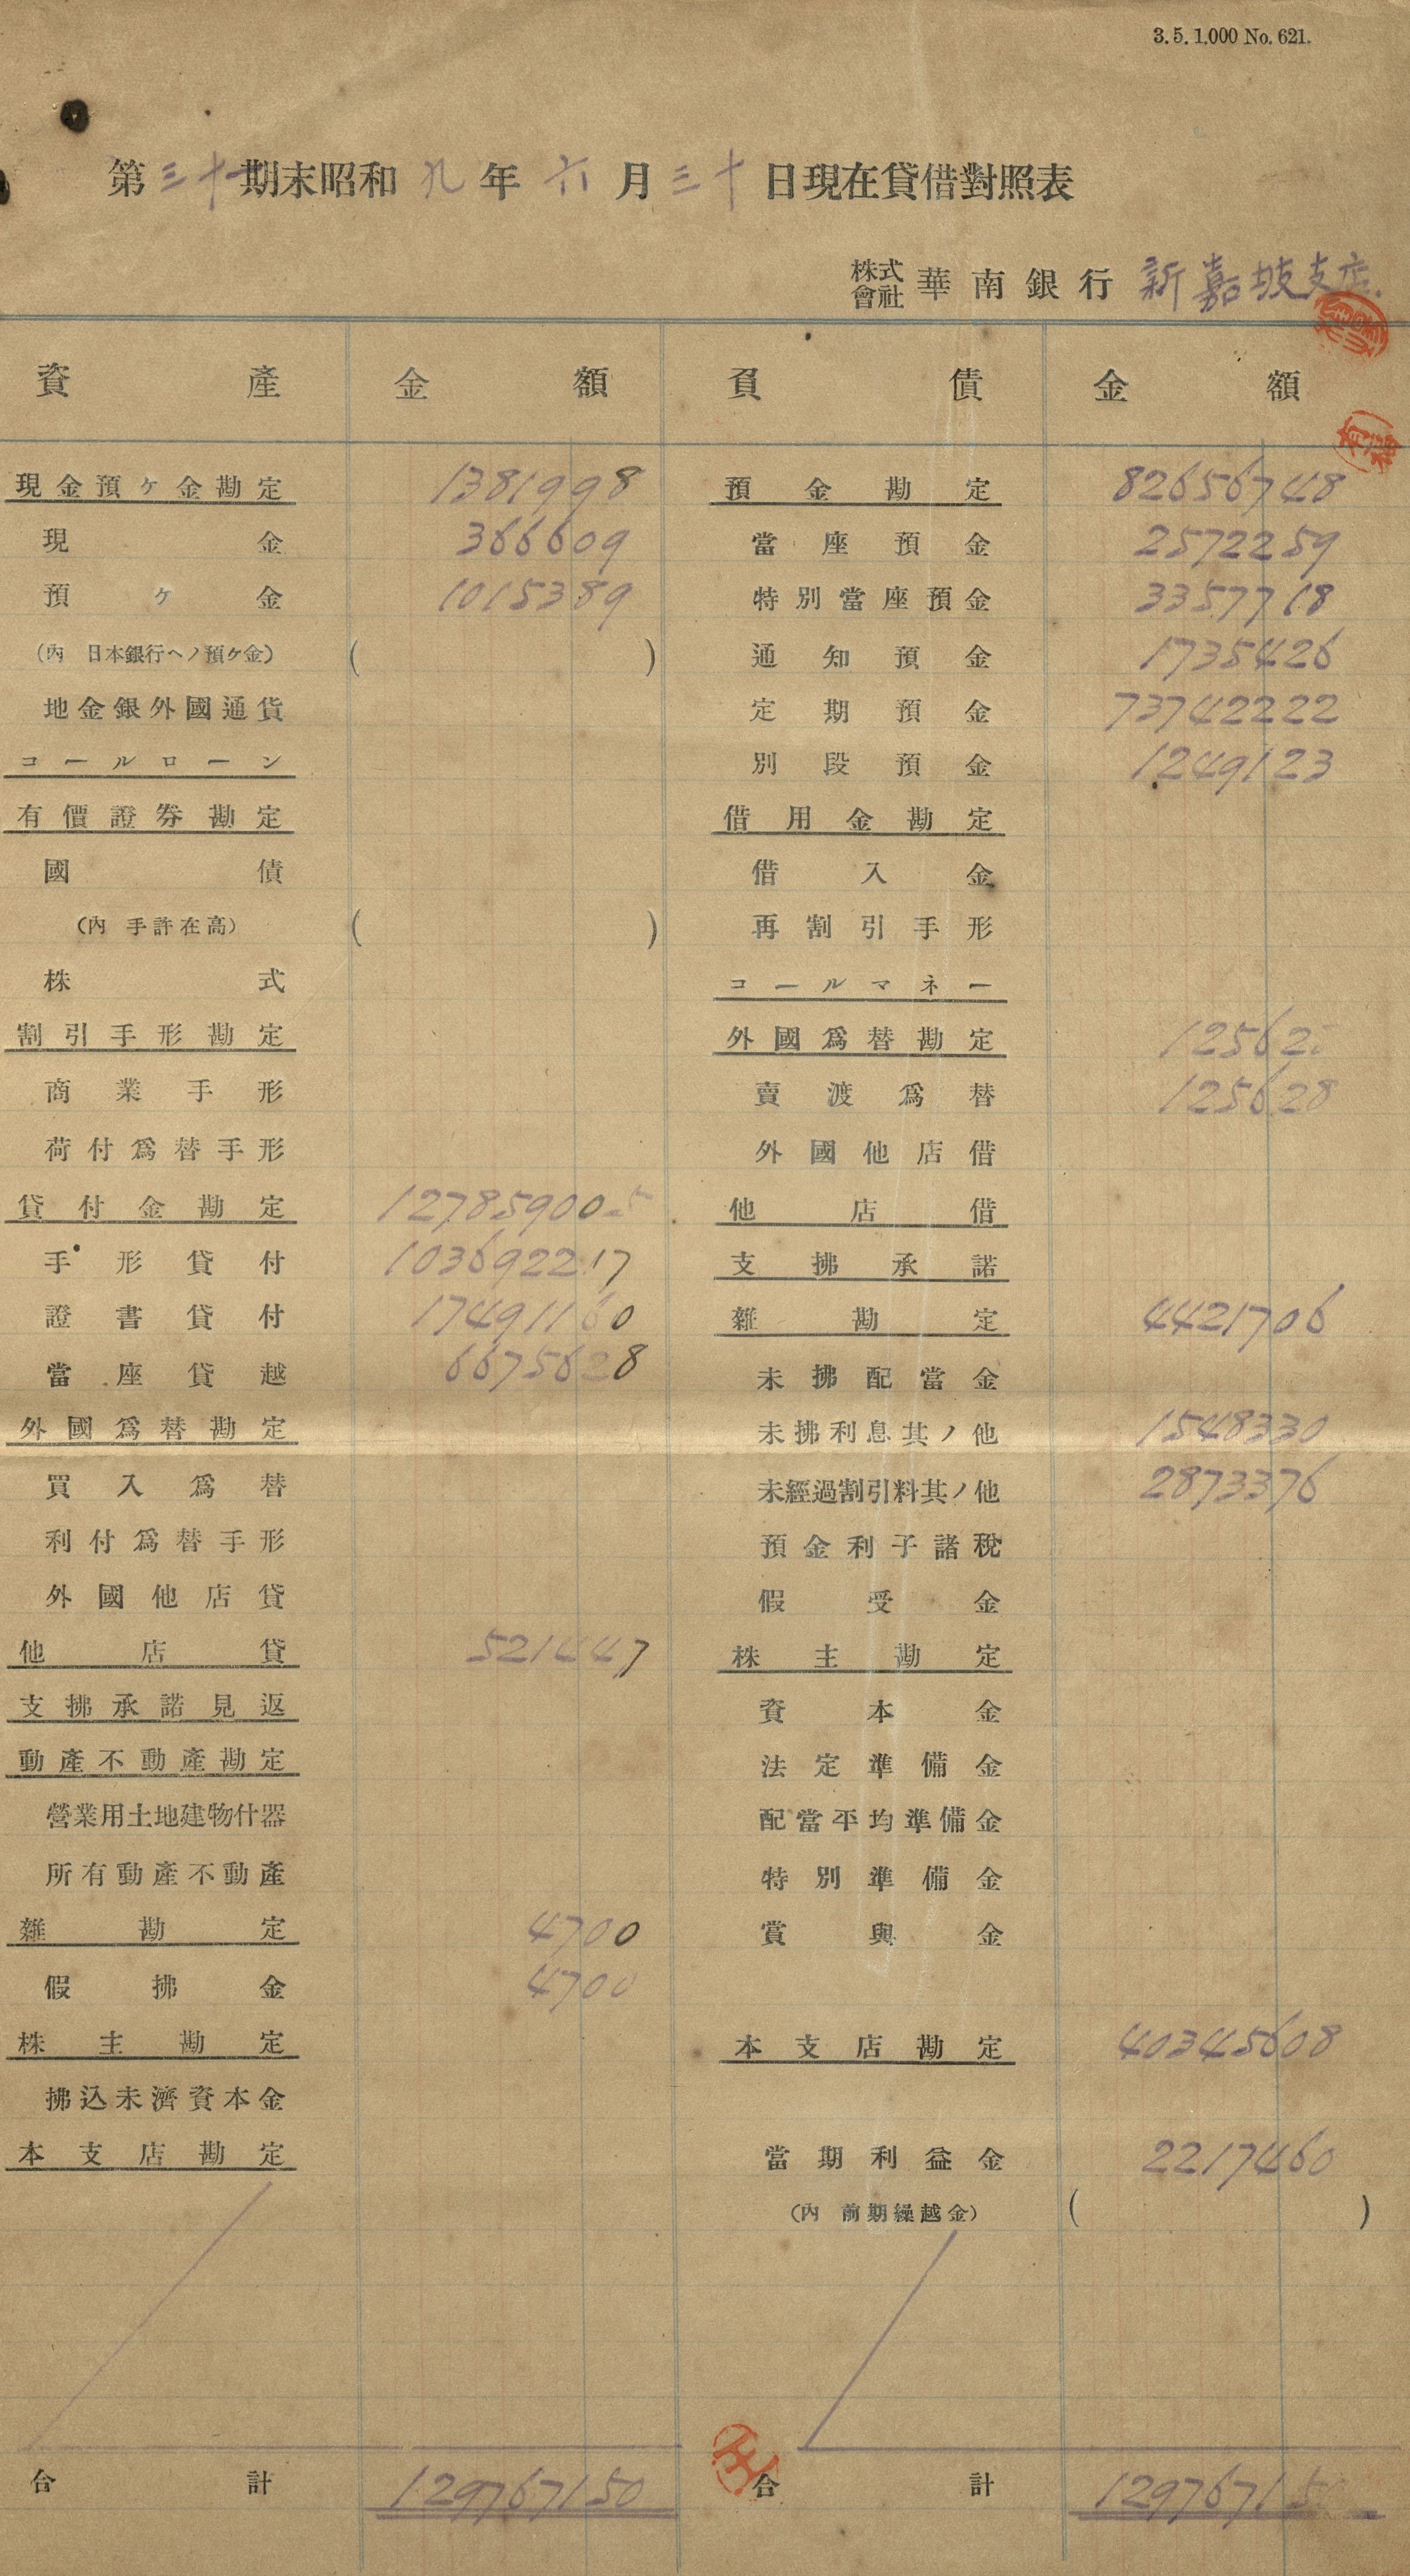 3.5.1,000 No. 621.
第三十一期末昭和九年六月三十日現在貸借對照表
株式會社 華南銀行 新嘉坡支店.
資產 金額 負債 金額
現金預ヶ金勘定 1381998 預金勘定 82656748
現金 366609 當座預金 2572259
預ヶ金 1015389 特別當座預金 3357718
(內 日本銀行ヘノ預ヶ金) ( ) 通知預金 1735426
地金銀外國通貨 定期預金 73742222
コールローン 別段預金 1249123
有價證券勘定 借用金勘定
國債 借入金
(內 手許在高) ( ) 再割引手形
株式 コールマネー
割引手形勘定 外國爲替勘定 125628
商業手形 賣渡爲替 125628
荷付爲替手形 外國他店借
貸付金勘定 127859005 他店借
手形貸付 103692217 支拂承諾
證書貸付 17491160 雜勘定 4421706
當座貸越 6675628 未拂配當金
外國爲替勘定 未拂利息其ノ他 1548330
買入爲替 未經過割引料其ノ他 2873376
利付爲替手形 預金利子諸稅
外國他店貸 假受金
他店貸 521447 株主勘定
支拂承諾見返 資本金
動產不動產勘定 法定準備金
營業用土地建物什器 配當平均準備金
所有動產不動產 特別準備金
雜勘定 4700 賞與金
假拂金 4700
株主勘定 本支店勘定 40345608
拂込未濟資本金
本支店勘定 當期利益金 2217460
(內 前期繰越金) ( )
合計 129767150 合計 129767150